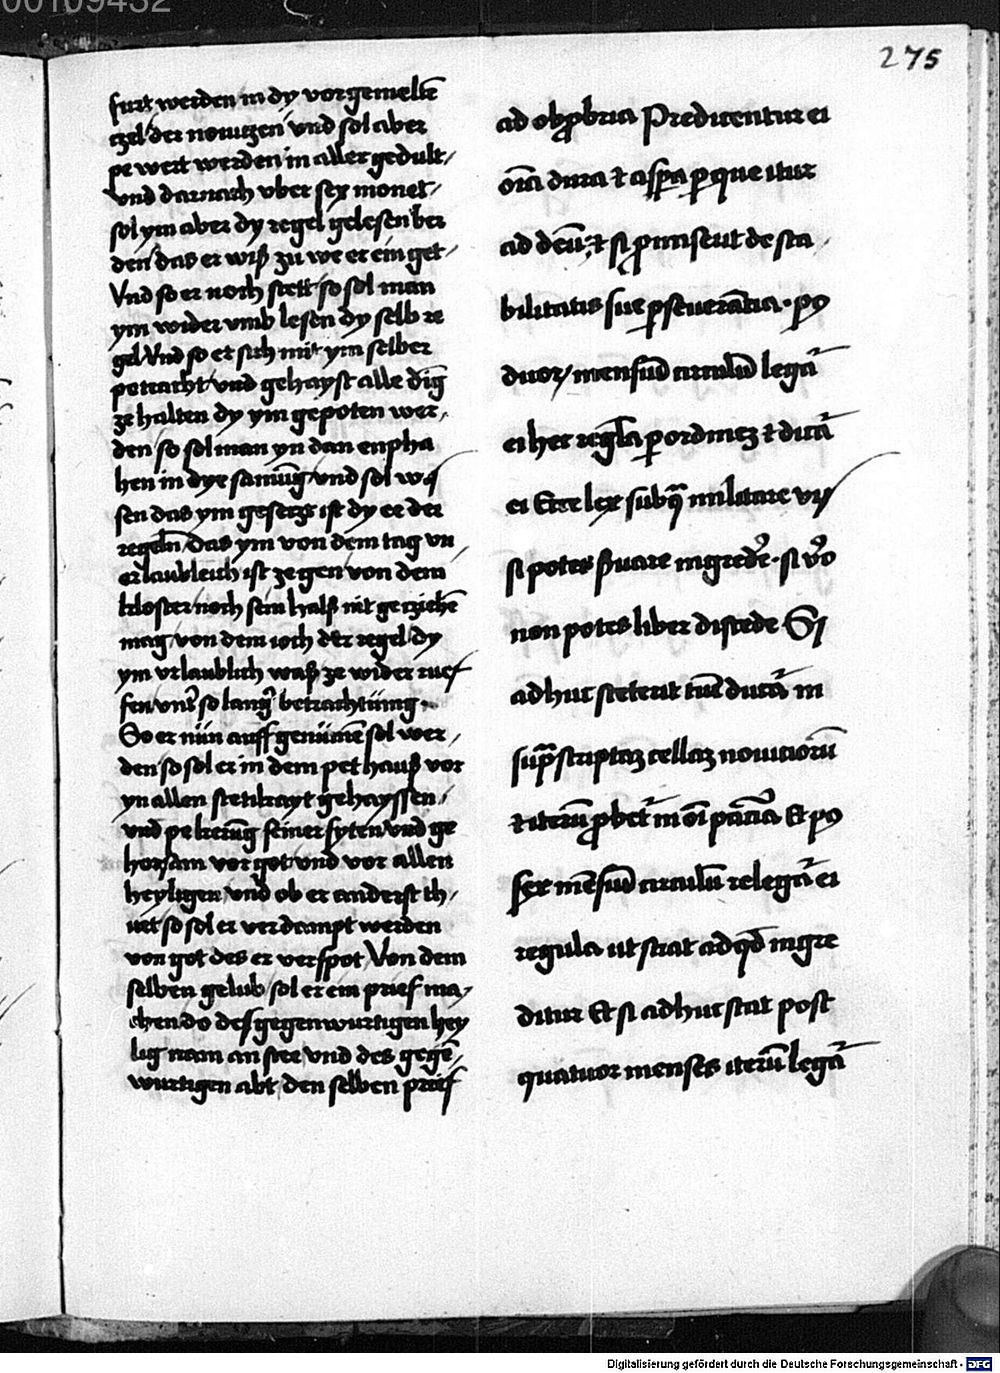 275
furt werden in dy vorgemeltē
tzel der nouitzen vnd sol aber
pewert werden in aller gedult /
vnd darnach vber sex monet /
sol ym aber dy regel gelesen ber
den das er wiß zu we er ein get /
Vnd so er noch stett so sol man
ym wider vmb lesen dy selb re
gel Vnd so er sich mit ym selber
petracht vnd gehayst alle dīg
ze halten dy ym gepoten wer /
den so sol man yn dan enpha
hen in dye samūg vnd sol wi
sen das ym gesetzt ist dy ee der
regeln das ym von dem tag vn /
erlaubleich ist ze gen von dem
kloster noch sein halß nit geziehē
mag von dem ioch der regel dy
ym vrlaublich waß ze wider ruef
fen vnter so langer betrachtung
So er nün auff genümē sol wer /
den so sol er in dem pethauß vor
yn allen stetikayt gehayssen /
vnd pekerūg seiner syten vnd ge
horsam vor got vnd vor allen
heyligen vnd ob er anderst th /
uet so sol er verdampt werden
von got des er verspot Von dem
selben gelub sol er ein prief ma /
chen do des gegenwurtigen hey
lig nam an stee vnd des gegē /
wurtigen abt den selben prief
ad obprobria Predicentur ei
oīa dura et aspera per que itur
ad deū et si promiserit de sta /
bilitatis sue perseuerātia post
duor mensiū circulū legat
ei hec regula per ordinem et dicat
ei Ecce lex sub qua militare vis
si potes seruare ingredere si vero
non potes liber discede Si
adhuc steterit tūc ducat in
suprascriptam cellam nouiciorū
et iterū probetur in oī paciēcia Et post
sex mēsiū circulū relegatur ei
regula ut sciat ad quod ingre
ditur Et si adhuc stat post
quatuor menses iterū legatur
Digitalisierung gefördert durch die Deutsche Forschungsgemeinschaft - DFG